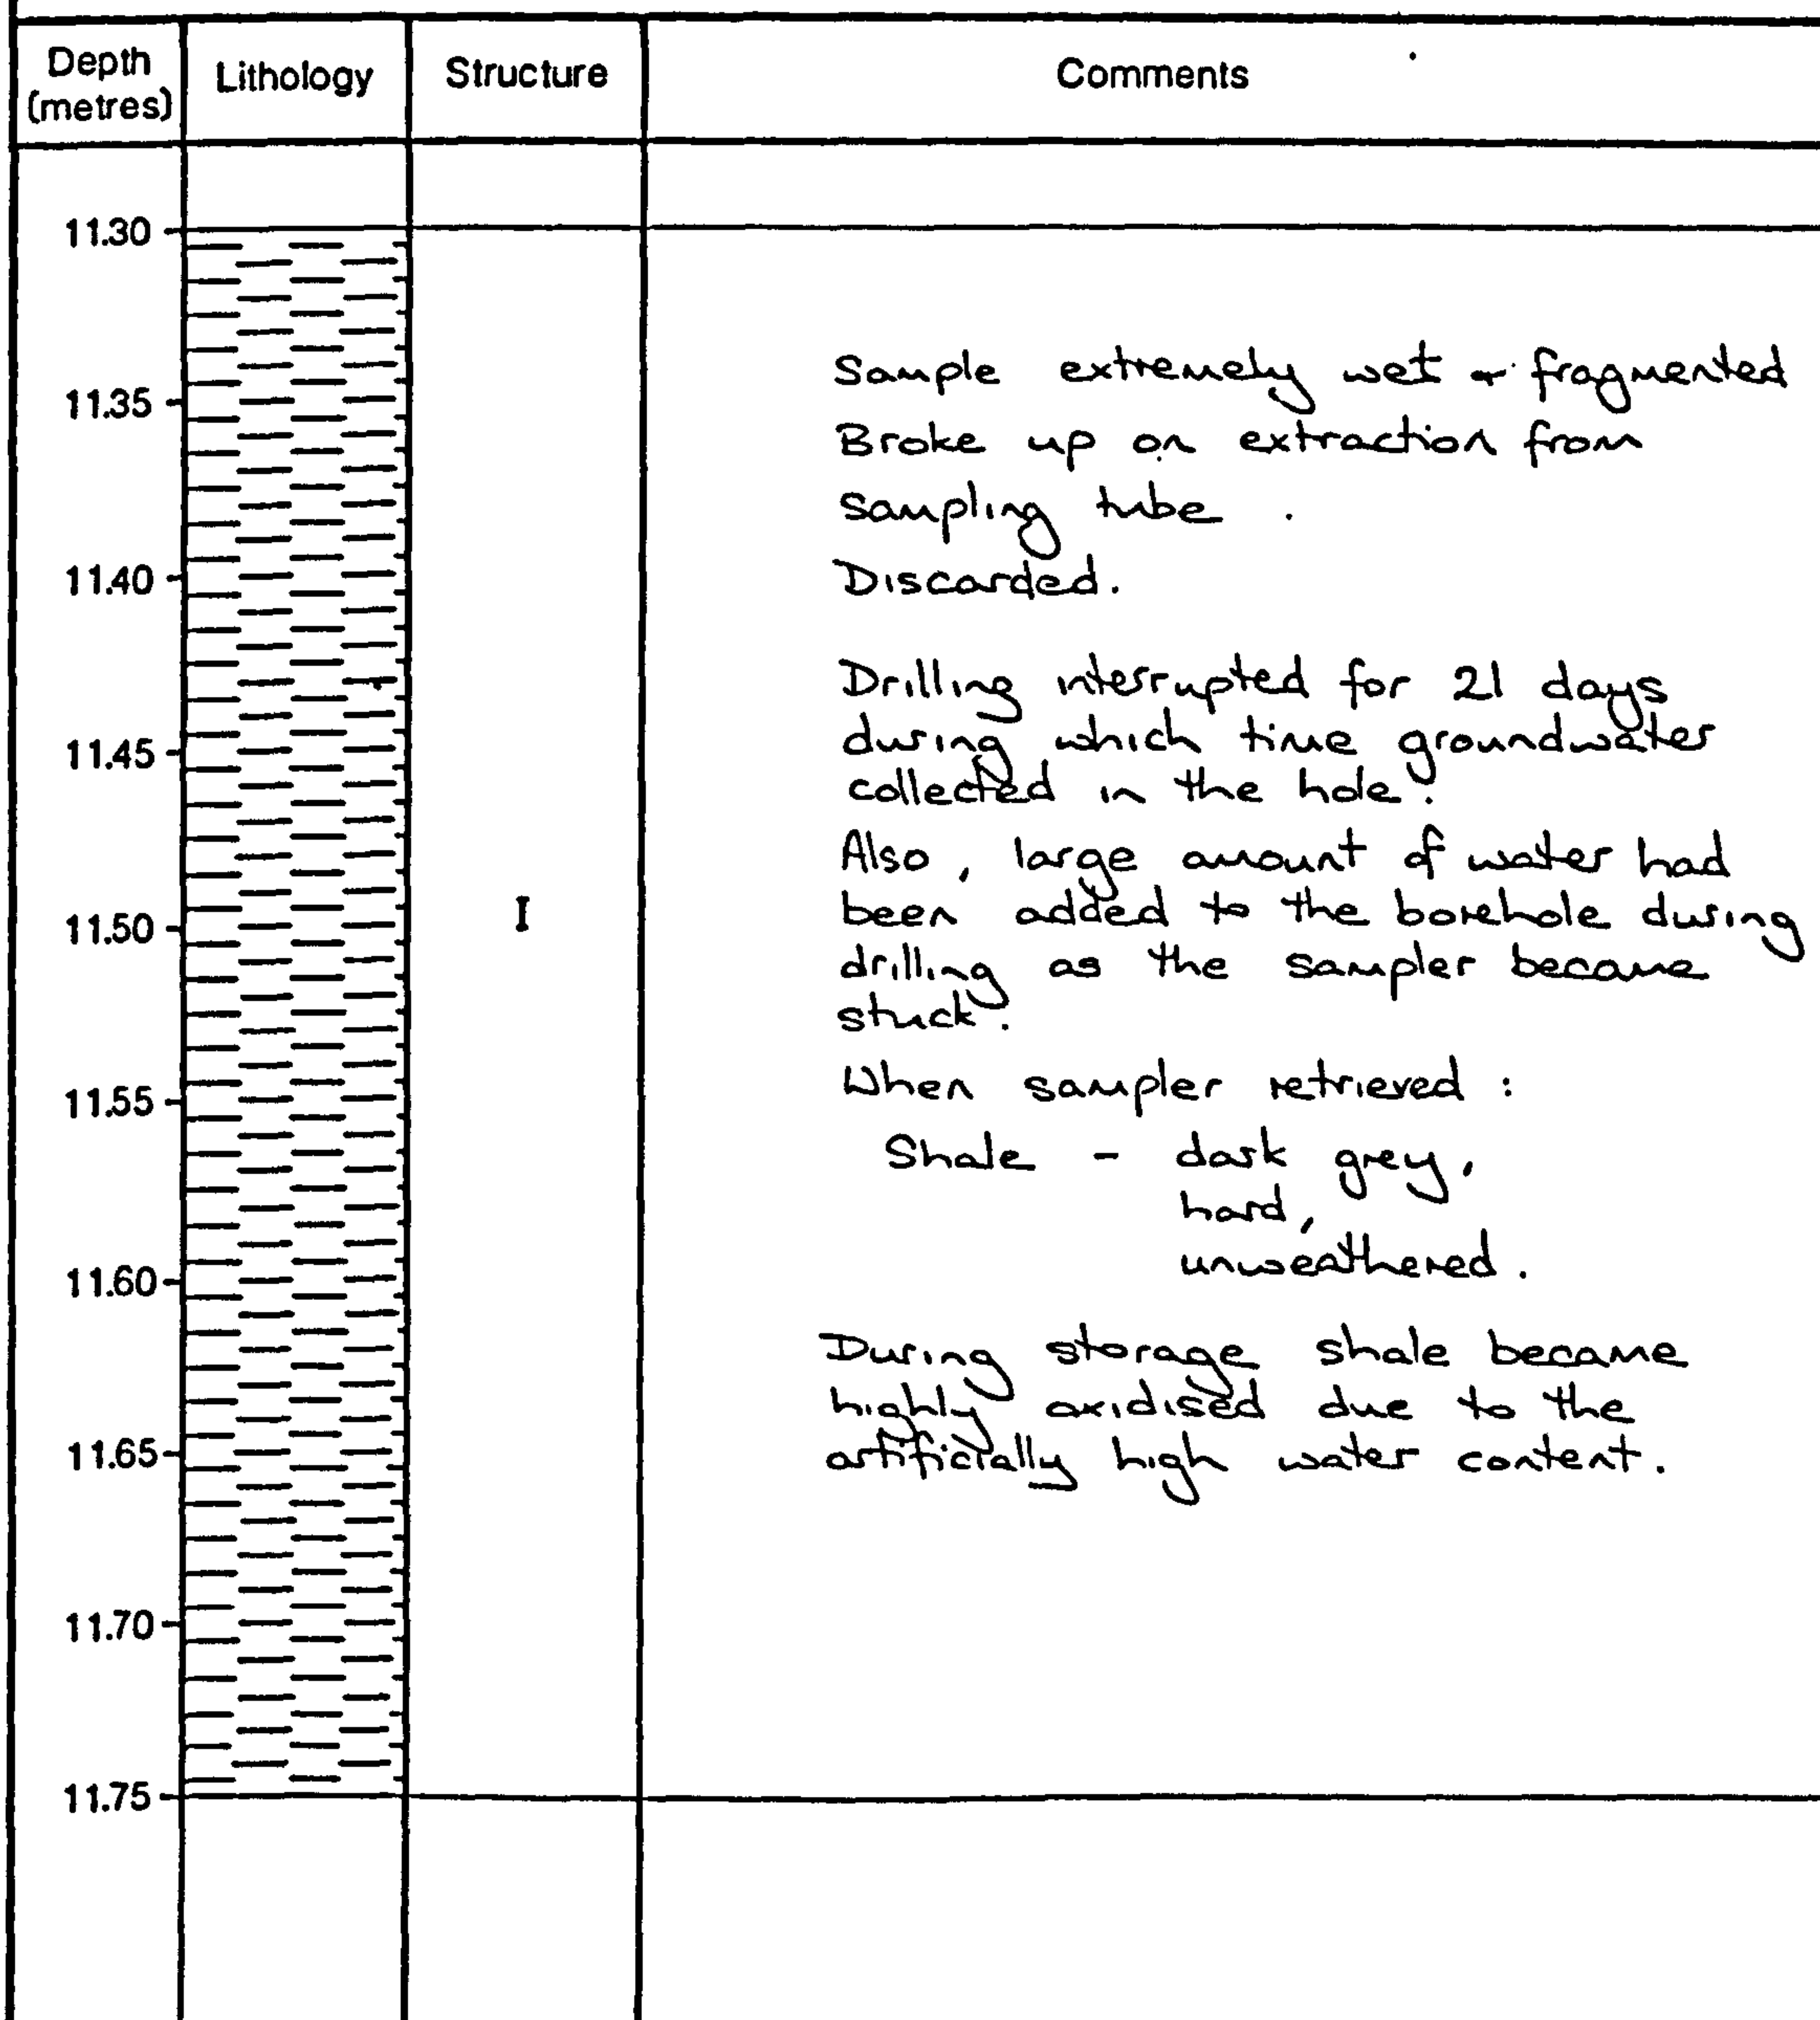 Depth
(metres)
Lithology
Structure
Comments
11.30
11.35
11.40
11.45
11.50
11.55
11.60
11.65
11.70
11.75
I
Sample extremely wet & fragmented
Broke up on extraction from
sampling tube .
Discarded.
Drilling interrupted for 21 days
during which time groundwater
collected in the hole.
Also, large amount of water had
been added to the borehole during
drilling as the sampler became
stuck.
When sampler retrieved :
Shale - dark grey,
hard,
unweathered.
During storage shale became
highly oxidised due to the
artificially high water content.